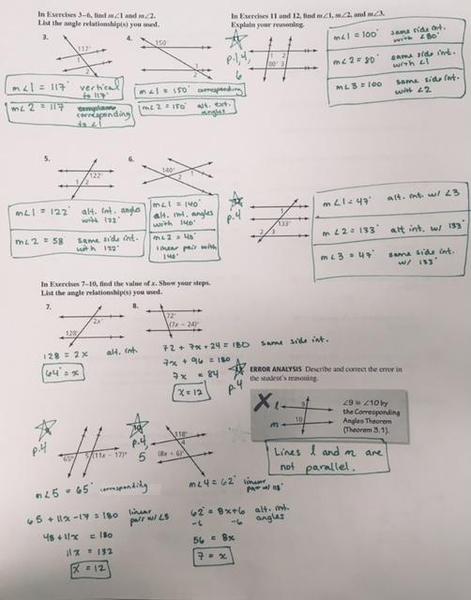 In Exercises 3-6, find m∠1 and m∠2.
List the angle relationship(s) you used.
3.
117°
1
2
m∠1 = 117° vertical
to 117°
m∠2 = 117
corresponding
to ∠1
4.
150°
1
2
m∠1 = 150° corresponding
m∠2 = 150° alt. ext.
angles
In Exercises 11 and 12, find m∠1, m∠2, and m∠3.
Explain your reasoning.
p.1,4,
6
1 2
80° 3
m∠1 = 100° same side int.
with ∠80°
m∠2 = 80° same side int.
with ∠1
m∠3 = 100 same side int.
with ∠2
5.
122°
1 2
m∠1 = 122° alt. int. angles
with 122°
m∠2 = 58 same side int.
with 122°
6.
140°
1
2
m∠1 = 140°
alt. int. angles
with 140°
m∠2 = 40°
linear pair with
140°
p.4
1
133°
2 3
m∠1 = 47° alt. int. w/ ∠3
m∠2 = 133° alt int. w/ 133°
m∠3 = 47° same side int.
w/ 133°
In Exercises 7-10, find the value of x. Show your steps.
List the angle relationship(s) you used.
7.
2x°
128°
128 = 2x alt. int.
64° = x
8.
72°
(7x + 24)°
72 + 7x + 24 = 180 same side int.
7x + 96 = 180
7x = 84
x = 12
p.4
ERROR ANALYSIS Describe and correct the error in
the student's reasoning.
ℓ
m
9
10
∠9 ≅ ∠10 by
the Corresponding
Angles Theorem
(Theorem 3.1).
Lines l and m are
not parallel.
p.4
65°
5
(11x - 17)°
m∠5 = 65° corresponding
65 + 11x - 17 = 180 linear
pair w/ ∠5
48 + 11x = 180
11x = 132
x = 12
p.4,
5
118°
4
(8x + 6)°
m∠4 = 62° linear
pair w/ 118°
62° = 8x+6 alt. int.
angles
-6 -6
56 = 8x
7 = x